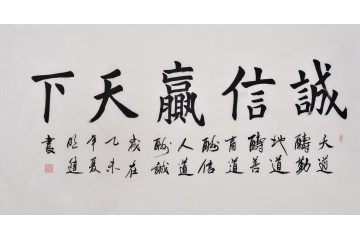 誠信贏天下
天道
酬勤
地道
酬善
商道
酬信
人道
酬誠
歲在
乙未
年夏
書